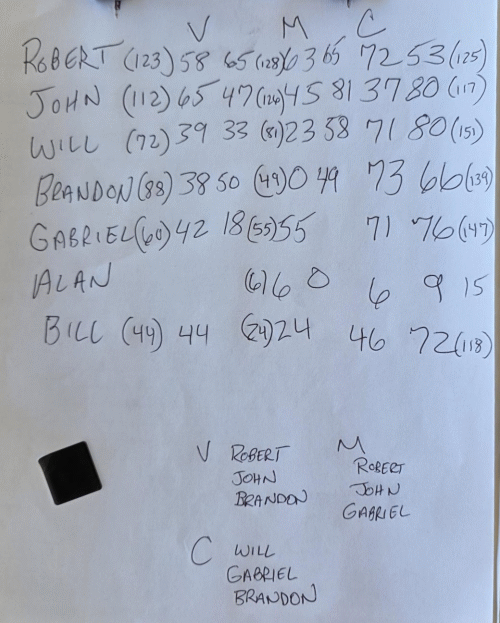 V M C
ROBERT (123) 58 65 (128) 63 65 72 53 (125)
JOHN (112) 65 47 (126) 45 81 37 80 (117)
WILL (72) 39 33 (81) 23 58 71 80 (151)
BRANDON (88) 38 50 (49) 0 49 73 66 (139)
GABRIEL (60) 42 18 (55) 55 71 76 (147)
ALAN (6) 6 0 6 9 15
BILL (44) 44 (24) 24 46 72 (118)
V ROBERT M
ROBERT
JOHN
JOHN
BRANDON
GABRIEL
C WILL
GABRIEL
BRANDON